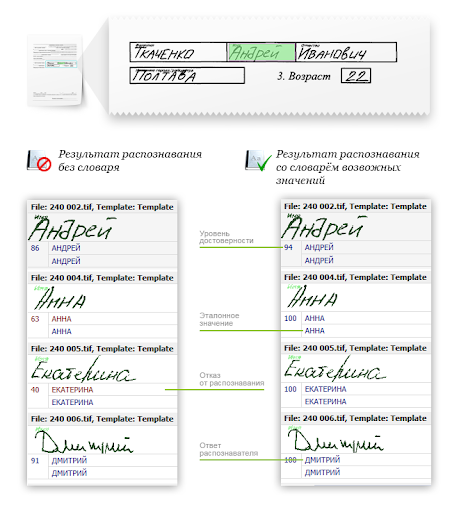 Ткаченко Андрей Иванович
Полтава 3. Возраст 22
Результат распознавания
без словаря
Результат распознавания
со словарём возвожных
значений
File: 240 002.tif, Template: Template
Имя
Андрей
86 АНДРЕЙ
АНДРЕЙ
File: 240 004.tif, Template: Template
Имя
Анна
63 АННА
АННА
File: 240 005.tif, Template: Template
Имя
Екатерина
40 ЕКАТЕРИНА
ЕКАТЕРИНА
File: 240 006.tif, Template: Template
Имя
Дмитрий
91 ДМИТРИЙ
ДМИТРИЙ
Уровень
достоверности
Эталонное
значение
Отказ
от распознавания
Ответ
распознавателя
File: 240 002.tif, Template: Template
Имя
Андрей
94 АНДРЕЙ
АНДРЕЙ
File: 240 004.tif, Template: Template
Имя
Анна
100 АННА
АННА
File: 240 005.tif, Template: Template
Имя
Екатерина
100 ЕКАТЕРИНА
ЕКАТЕРИНА
File: 240 006.tif, Template: Template
Имя
Дмитрий
100 ДМИТРИЙ
ДМИТРИЙ